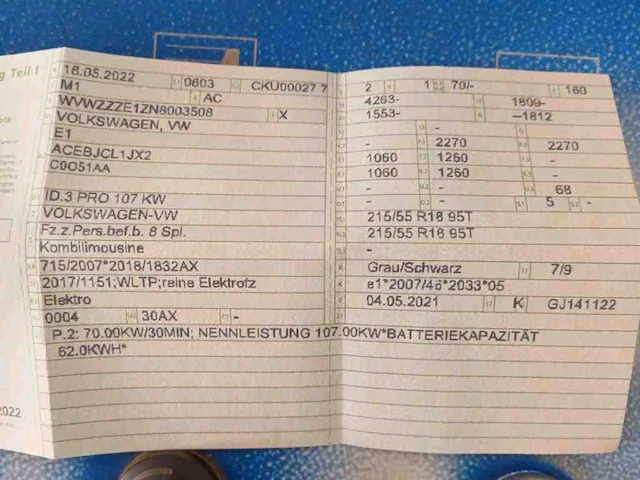 g Teil I
18.05.2022 0603 CKU00027 7
M1 AC
WVWZZZE1ZN8003508 X
VOLKSWAGEN, VW
E1
ACEBJCL1JX2
C0O51AA
ID.3 PRO 107 KW
VOLKSWAGEN-VW
Fz.z.Pers.bef.b. 8 Spl.
Kombilimousine
715/2007*2018/1832AX
2017/1151;WLTP;reine Elektrofz
Elektro
0004 30AX -
2 1 70/- 160
4263- 1809-
1553- --1812
- -
- 2270 2270
1060 1260 -
1060 1260 -
- - 68
- - 5 -
215/55 R18 95T
215/55 R18 95T
-
Grau/Schwarz 7/9
e1*2007/46*2033*05
04.05.2021 K GJ141122
P.2: 70.00KW/30MIN; NENNLEISTUNG 107.00KW*BATTERIEKAPAZITÄT
62.0KWH*
2022